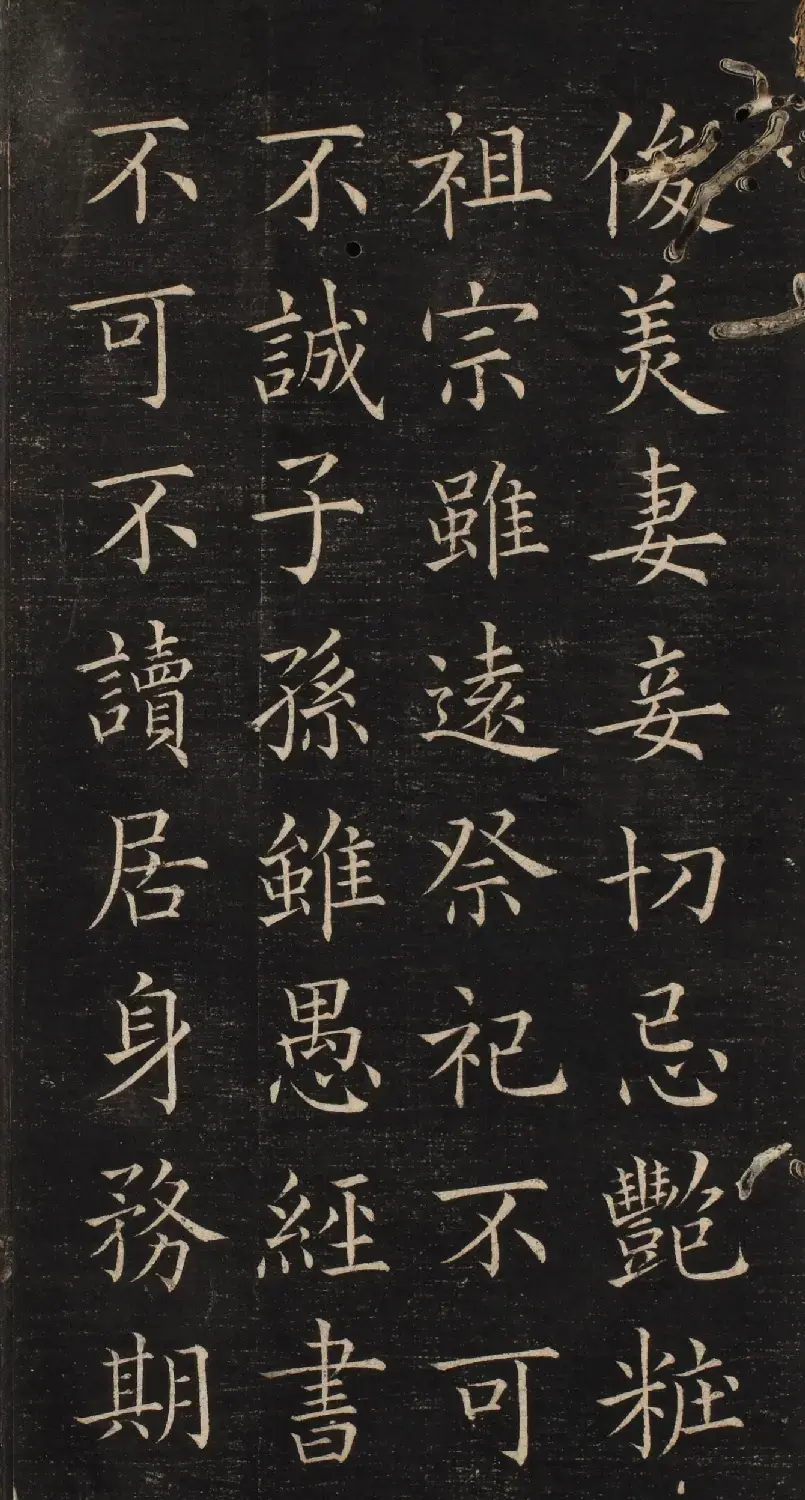 俊美妻妾切忌艷粧
祖宗雖遠祭祀不可
不誠子孫雖愚經書
不可不讀居身務期